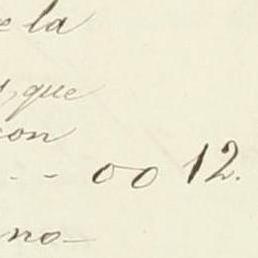 e la
, que
con
-- oo 12.
no-